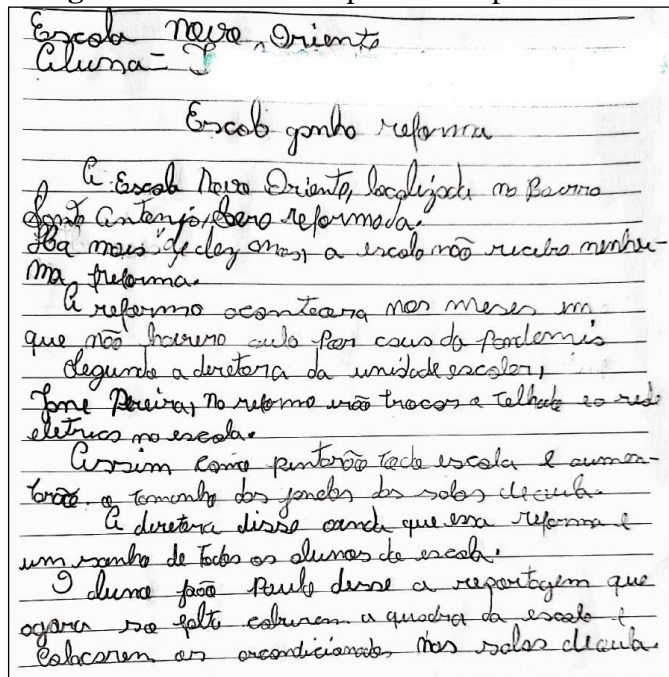 Escola Novo Oriente
Aluna= J
Escola ganha reforma
A Escola Novo Oriente, localizada no Bairro
Santo Antonio, sera reformada.
Ha mais de dez anos, a escola não recebe nenhu-
ma reforma.
A reforma acontecera nos meses em
que não havera aula por caus da pandemia
Segundo a diretora da unidade escolar,
Jane Pereira, na reforma irão trocar o telhado e a rede
eletrica na escola.
Assim como pintarão toda escola e aumen-
tarão o tamanho das janelas das salas de aula.
A diretora disse ainda que essa reforma é
um sonho de todos os alunos da escola.
O aluno João Paulo disse a reportagem que
agora so falta cobrirem a quadra da escola e
colocarem os arcondicionados nas salas de aula.